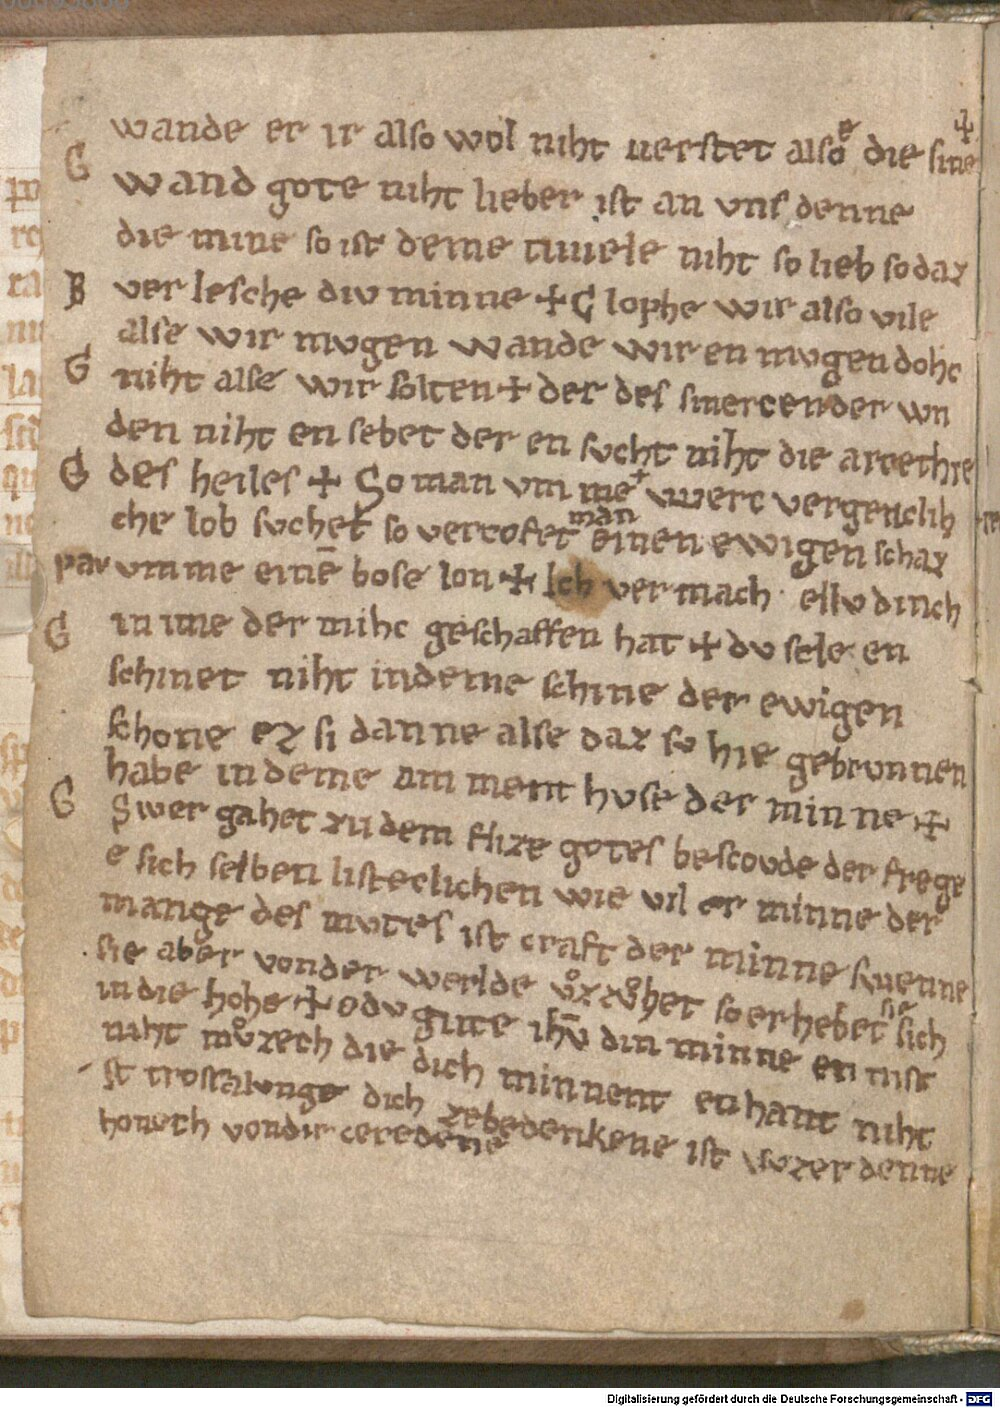 wande er ir also wol niht uerstet alsoͤ die sine ✢
G
wand gote niht lieber ist an vns denne
die mine so ist deme tiuuele niht so lieb so daz
B ver lesche div minne ✢ G lophe wir also vile
alse wir mvgen wande wir en mvgen dohc
G niht alse wir solten ✢ der des smercen der wn
den niht en sebet der en svcht niht die arcethie
G des heiles ✢ So man vm me wert vergenclih
che lob svchet so vercofet man einen ewigen schaz
par vmme einē bose lon ✢ Ich ver mach ellv dinch
G in ime der mihc geschaffen hat ✢ dv sele en
schinet niht in deme schine der ewigen
schone ez si danne alse daz sv hie gebrvnnen
habe in deme am ment hvse der minne ✢
G Swer gahet zu dem flize gotes bescovde der frege
e sich selben listeclichen wie vil er minne der
mange des mvtes ist craft der minne swenne
sie aber vonder werlde vͦzzvͦhet so er hebet sie sich
in die hohe ✢ o dv gute ihū din minne en nist
niht mvͦzech die dich minnent en hant niht
st trostzunge dich zebedenkene ist svzer denne
honech vondir ceredene